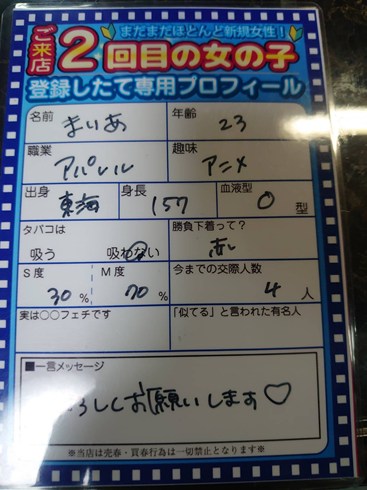 まだまだほとんど新規女性！
ご来店2回目の女の子
登録したて専用プロフィール
名前 まりあ 年齢 23
職業 アパレル 趣味 アニメ
出身 東海 身長 157 血液型 O 型
タバコは 勝負下着って？
吸う 吸わない 赤
S度 M度 今までの交際人数
30% 70% 4人
実は○○フェチです 「似てる」と言われた有名人
■一言メッセージ
ろしくお願いします♡
※当店は売春・買春行為は一切禁止となります※